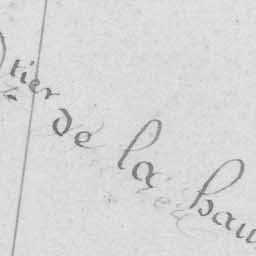 tier de la hau